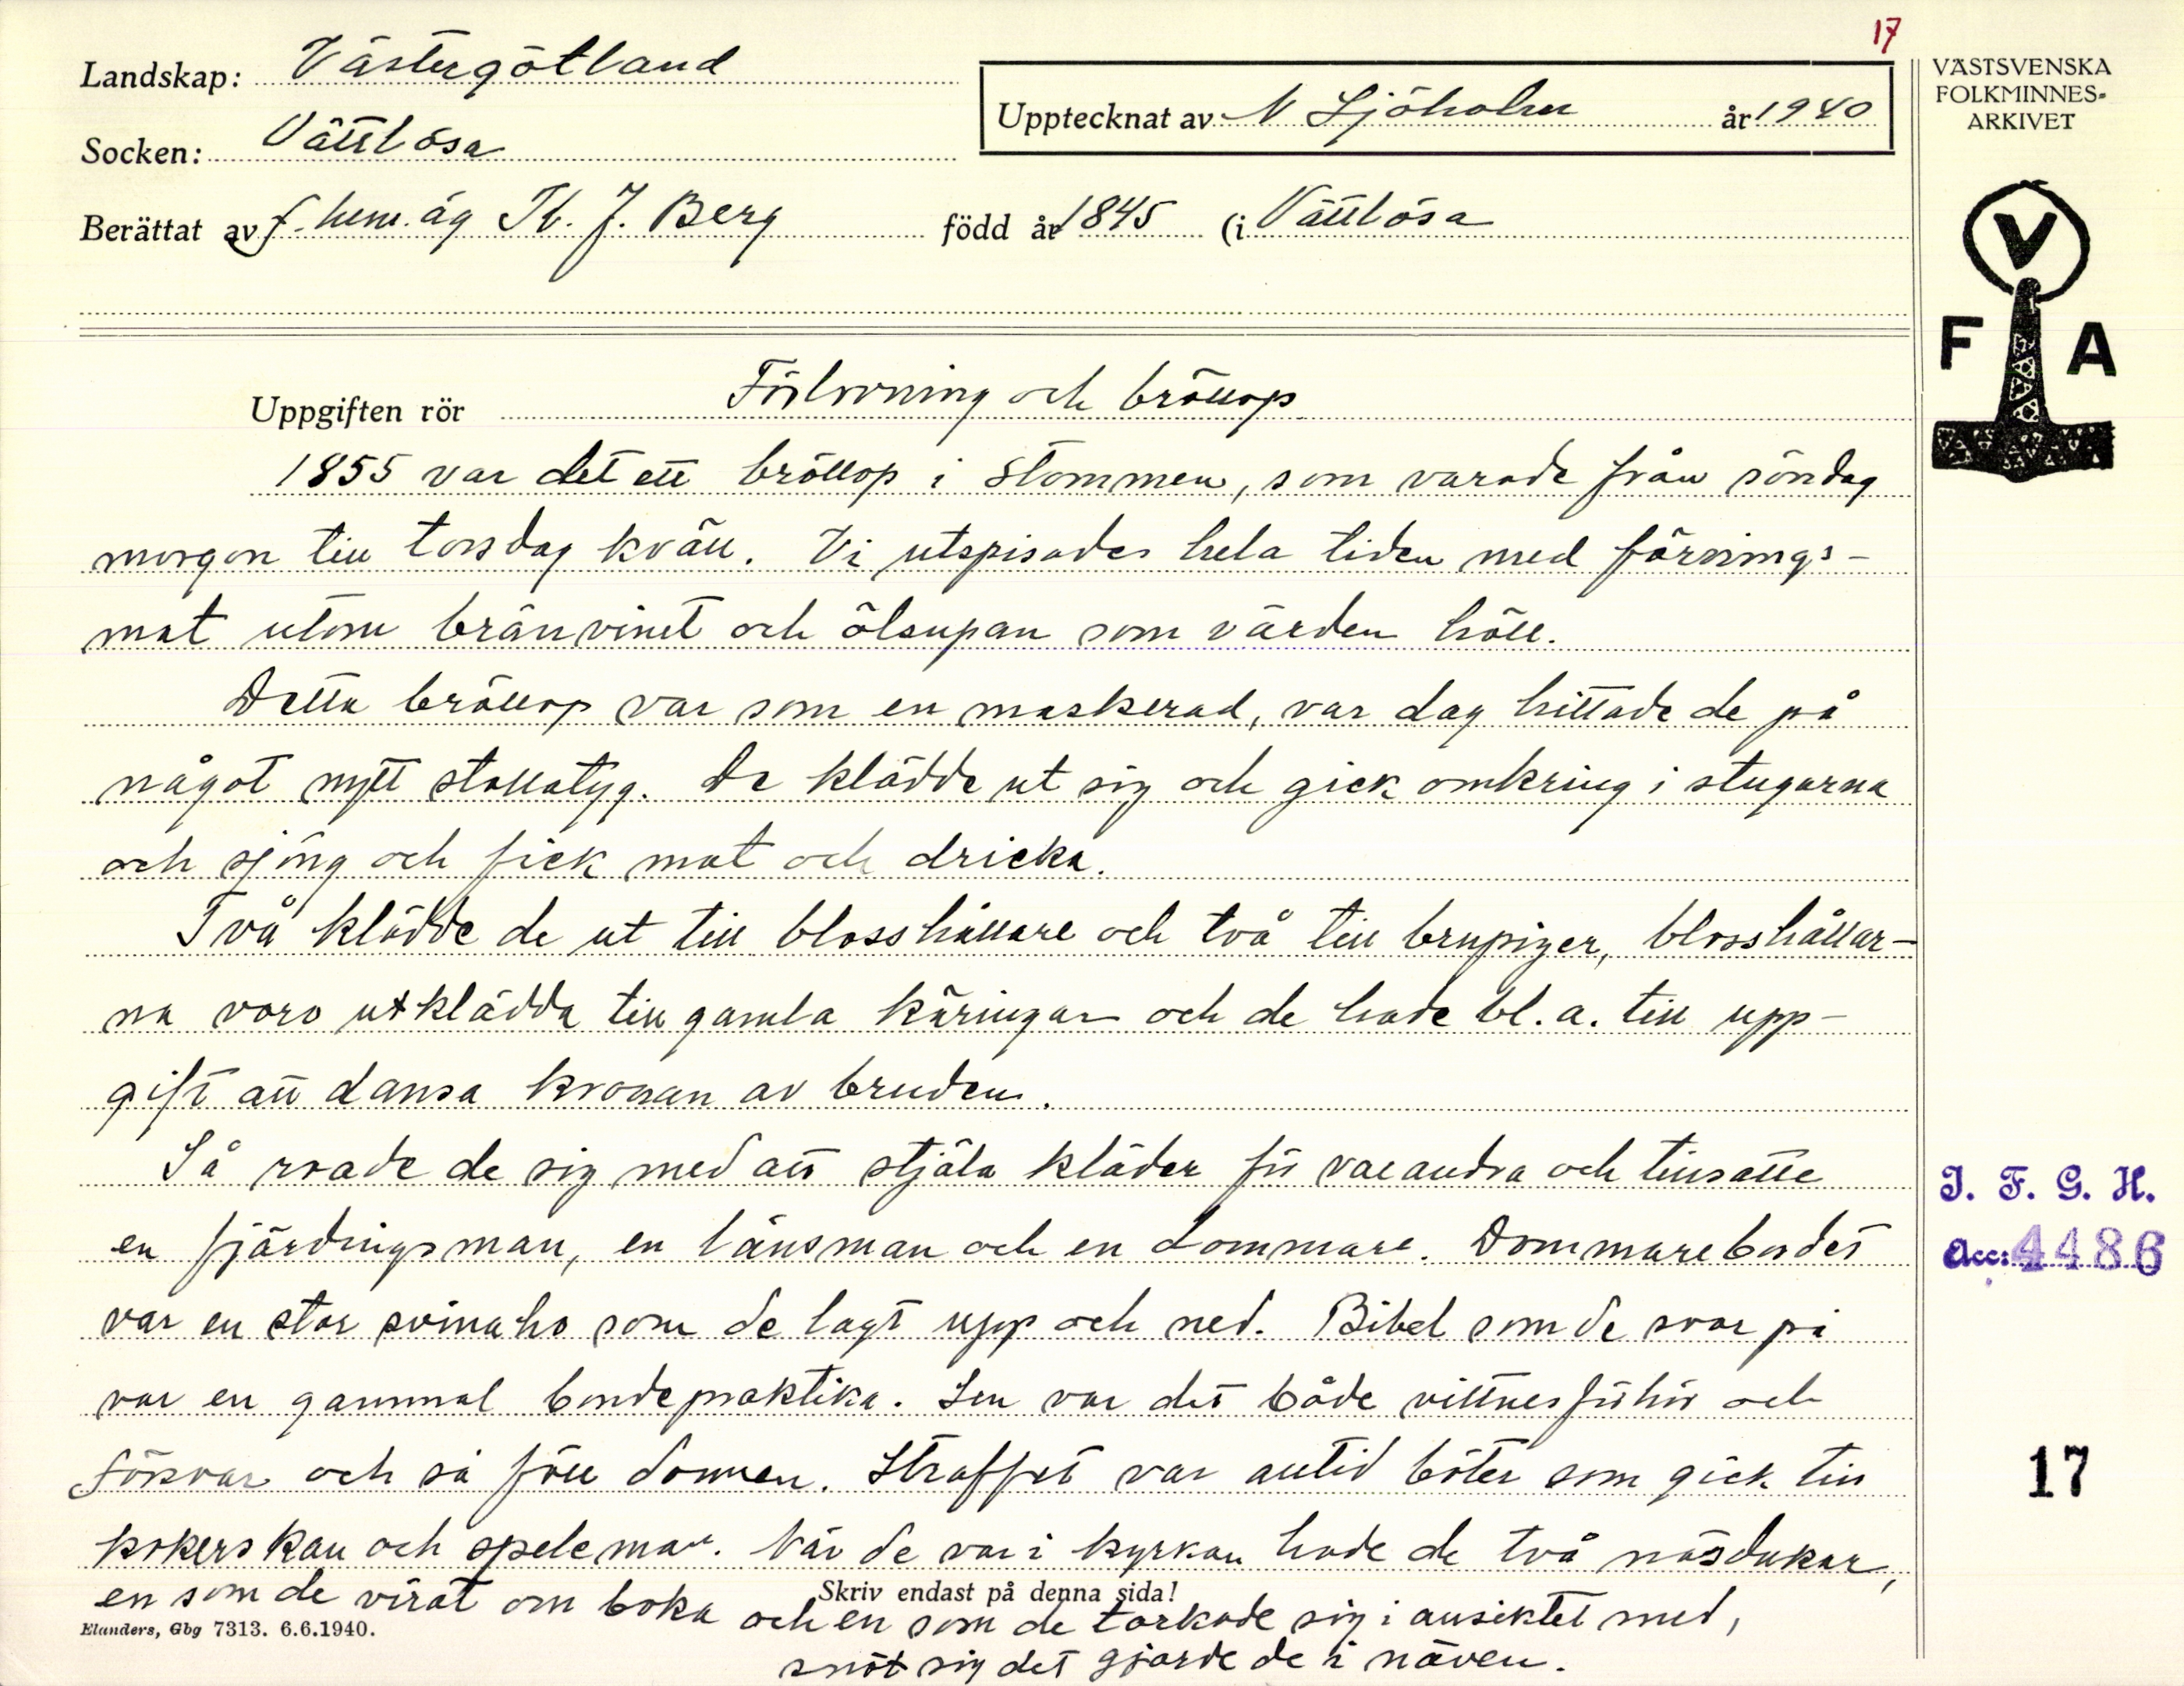 17
Landskap: Västergötland
Socken: Vättlösa
Upptecknat av N Sjöholm år 1940
Berättat av f. hem.äg Th. J. Berg född år 1845 (i Vättlösa
VÄSTSVENSKA
FOLKMINNES-
ARKIVET
V
F A
Uppgiften rör Förlovning och bröllop
1855 var det ett bröllop i Stommen, som varade från söndag
morgon till torsdag kväll. Vi utspisades hela tiden med förnings-
mat utom bränvinet och ölsupan som värden höll.
Detta bröllop var som en maskerad, var dag hittade de på
något nytt stollatyg. De klädde ut sig och gick omkring i stugorna
och sjöng och fick mat och dricka.
Två klädde de ut till blosshållare och två till brupiger, blosshållar-
na voro utklädda till gamla käringar och de hade bl.a. till upp-
gift att dansa kronan av bruden.
Så roade de sig med att stjäla kläder för varandra och tillsatte
en fjärdingsman, en länsman och en dommare. Dommarebordet
var en stor svinaho som de lagt upp och ned. Bibel som de svor på
var en gammal bondepraktika. Sen var det både vittnesförhör och
försvar och så föll domen. Straffet var alltid böter som gick till
kokerskan och speleman. När de var i kyrkan hade de två näsdukar,
en som de virat om boka och en som de torkade sig i ansiktet med,
snöt sig det gjorde de i näven.
Skriv endast på denna sida!
Elanders, Gbg 7313. 6.6.1940.
I. F. G. H.
Acc: 4486
17